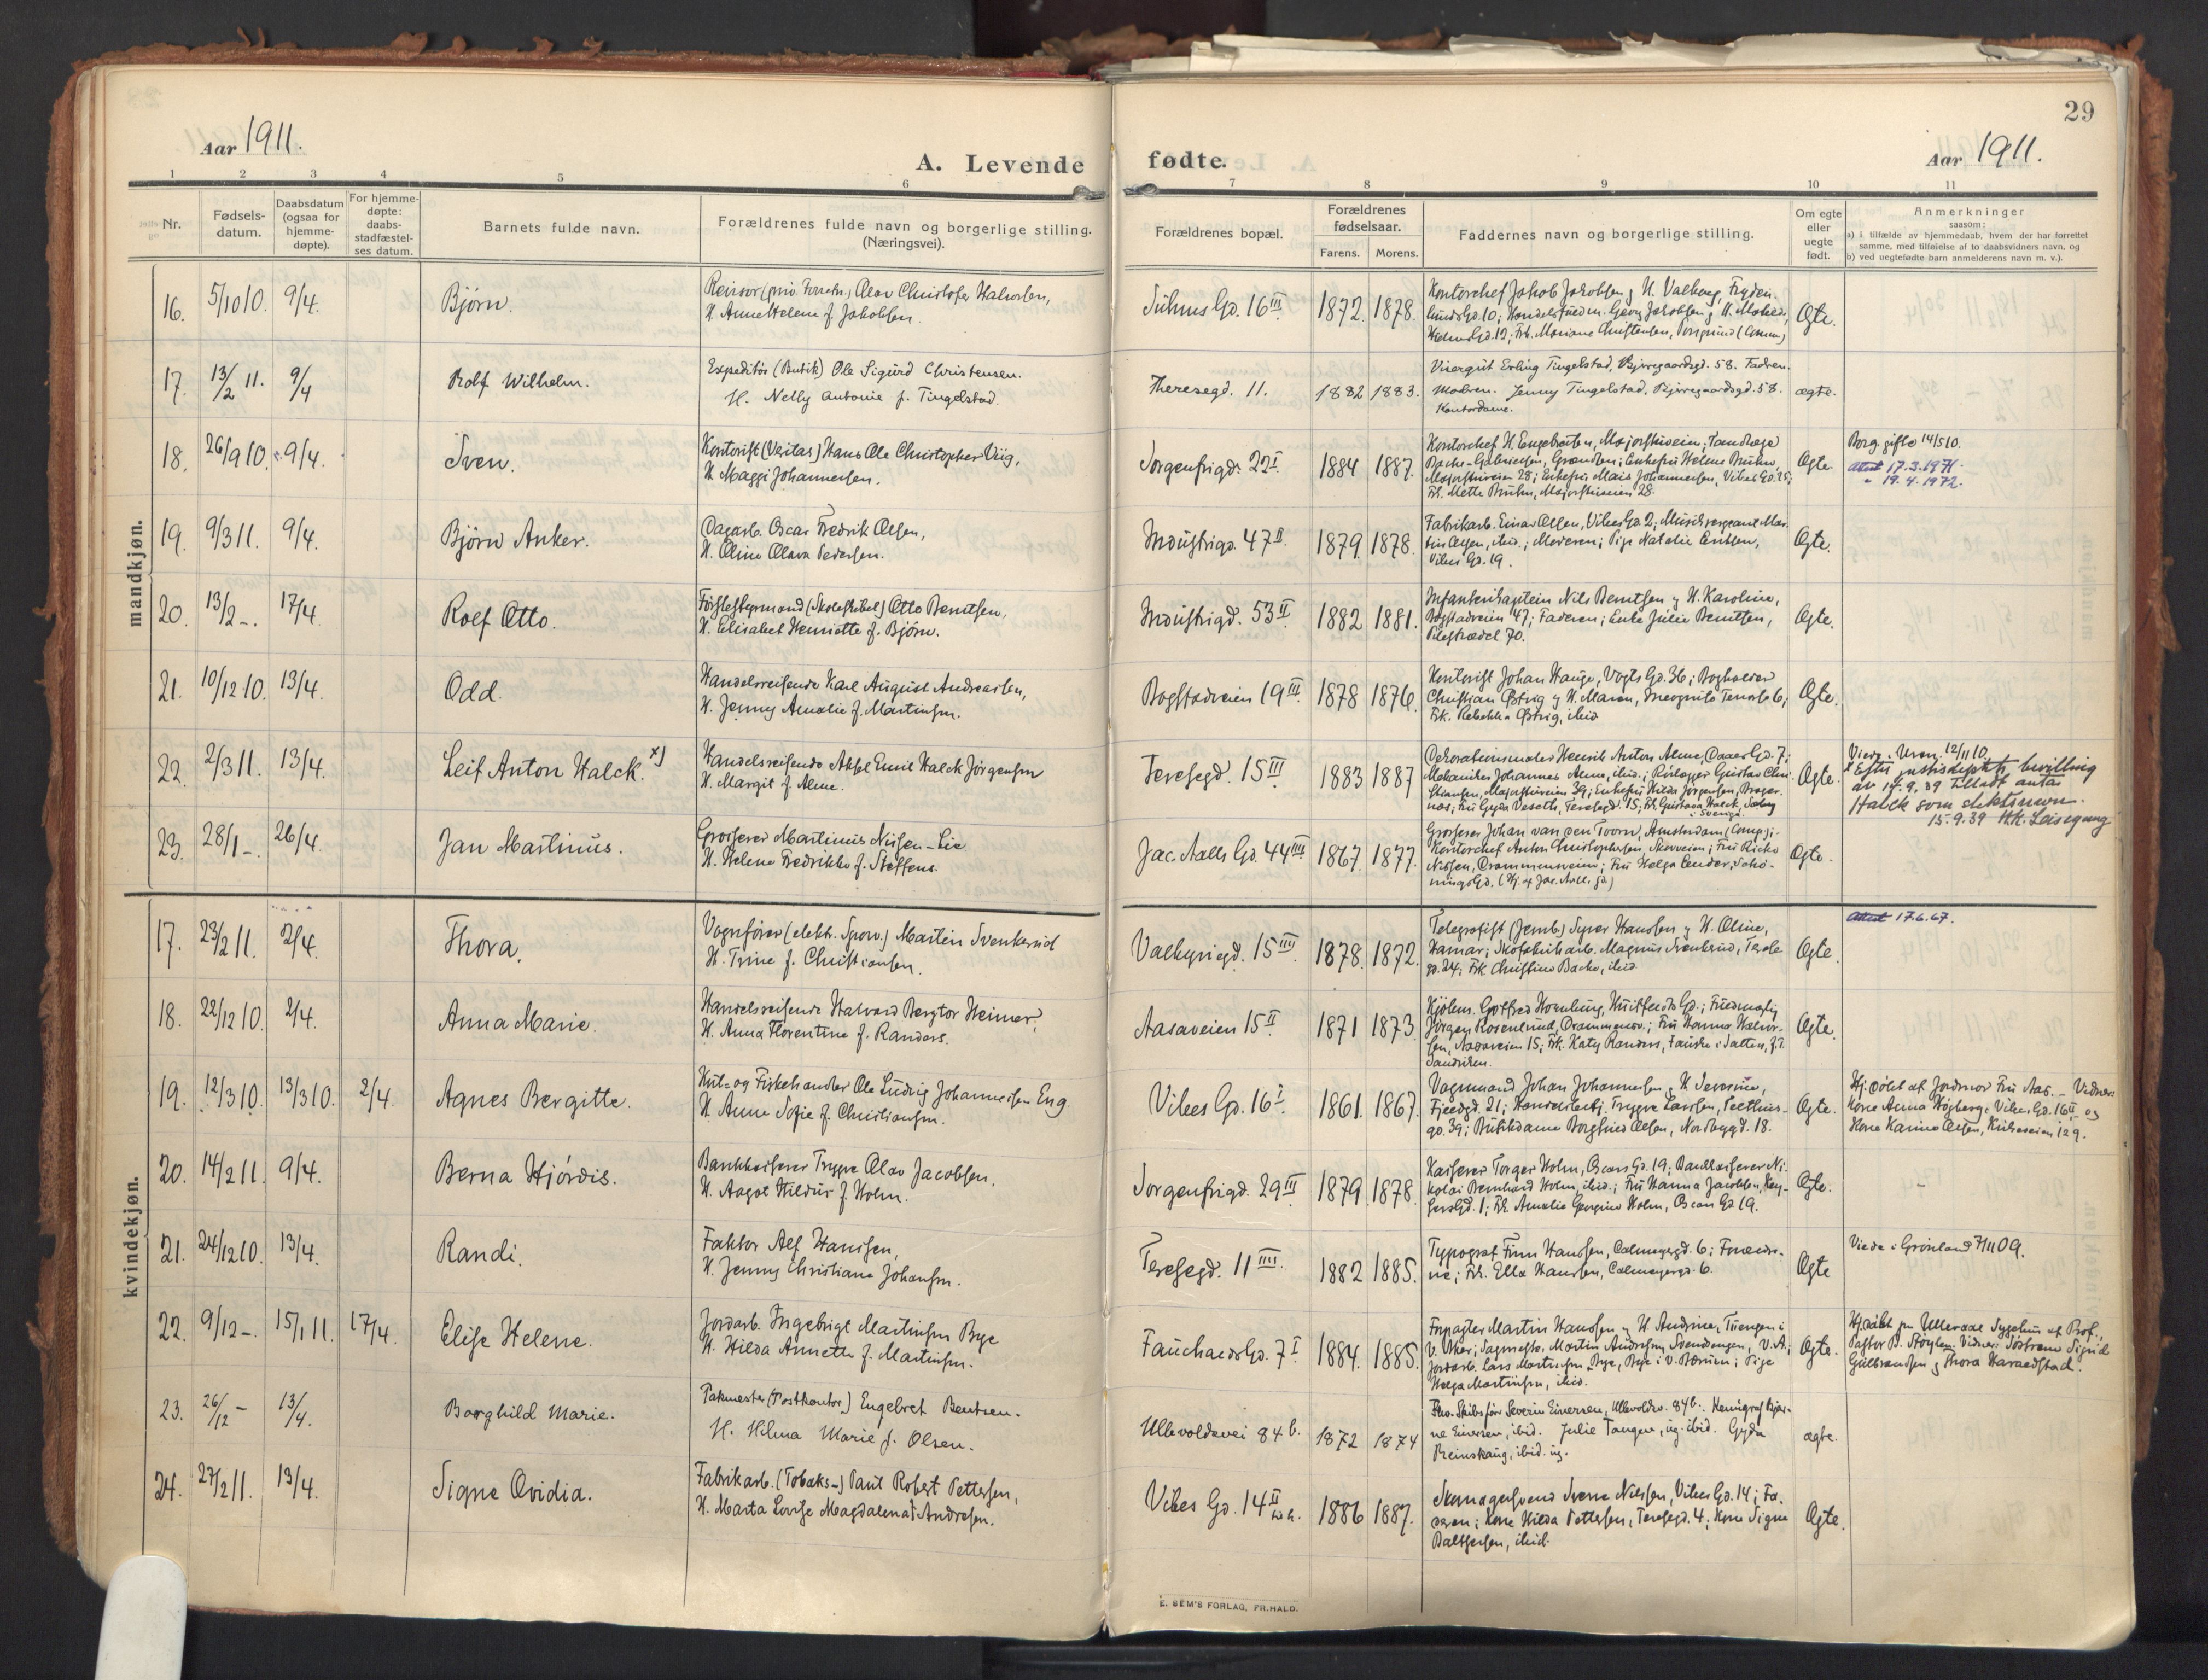 29
Aar 1911.
A. Levende fødte.
Aar 1911.
1 2 3 4 5 6 7 8 9 10 11
Nr.
Fødsels-
datum.
Daabsdatum
(ogsaa for
hjemme-
døpte).
For hjemme-
døpte:
daabs-
stadfæstel-
ses datum.
Barnets fulde navn.
Forældrenes fulde navn og borgerlige stilling.
(Næringsvei).
Forældrenes bopæl.
Forældrenes
fødselsaar.
Farens. Morens.
Faddernes navn og borgerlige stilling.
Om egte
eller
uegte
født.
Anmerkninger
saasom:
a) i tilfælde av hjemmedaab, hvem der har forrettet
samme, med tilføielse af to daabsvidners navn, og
b) ved uegtefødte barn anmelderens navn m. v.).
mandkjøn.
16. 5/10 10. 9/4. Bjørn.
Christofer Halvorsen,
H. Anne Helene f. Jakobsen.
16 III 1872. 1878.
Kontorchef Jakob Jakobsen
Ægte.
17. 13/2 11. 9/4 Rolf Wilhelm.
Expeditør (Butik) Ole Sigurd Christensen.
H. Nelly Antonie f. Tingelstad.
Theresegd. 11. 1882 1883.
Erling Tingelstad, Bjerregaardsgd. 58. Faderen.
Moderen. Jenny Tingelstad, Bjerregaardsgd. 58.
Kontordame.
ægte.
18. 26/9 10. 9/4. Sven.
Kontorist (Veritas) Hans Ole Christopher Viig,
H. Maggi Johannesen.
Sorgenfrigd. 22 I 1884 1887.
Kontorchef H. Engebretsen, Majorstuveien; Tandlæge
Majorstuveien 28; Enkefru Mais Johannesen, Vibes Gd. 25;
Frk. Mette Bruhn, Majorstuveien 28.
Ægte.
Borg. gifte 14/5 10.
Attest 17.3.1971.
" 19.4.1972.
19. 9/3 11. 9/4. Bjørn Anker.
Dagarb. Oscar Fredrik Olsen,
H. Oline Olava Pedersen.
Industrigd. 47 II. 1879. 1878.
Fabrikarb. Einar Olsen, Vibes Gd. 2; Musiksergeant Mar-
tin Olsen, ibid.; Moderen; Pige Natalie Eriksen,
Vibes Gd. 19.
Ægte.
20. 13/2 -. 17/4. Rolf Otto.
Otto Berntsen,
H. Elisabet Henriette f. Bjørn.
Industrigd. 53 II 1882 1881.
Infanterikaptein Nils Berntsen og H. Karoline,
Bogstadveien 47; Faderen; Enke Julie Berntsen,
Pilestrædet 70.
Ægte.
21. 10/12 10. 13/4. Odd.
Handelsreisende Karl August Andreassen,
H. Jenny Amalie f. Martinsen.
Bogstadveien 19 III. 1878 1876.
Kontorist Johan Hauge, Vogts Gd. 36; Bogholder
Christian Østvig og H. Maren, Incognito Terrasse 6;
Frk. Rebekka Østvig, ibid
Ægte.
22. 2/3 11. 13/4. Leif Anton Halck. x)
Handelsreisende Aksel Emil Halck Jørgensen
H. Margit f. Alme.
Teresegd. 15 III 1883 1887
Dekorationsmaler Henrik Anton Alme, Daaes Gd. 7;
Mekaniker Johannes Alme, ibid.; Rørlægger Gustav Chri-
stiansen, Majorstuveien 39; Enkefru Hilda Jørgensen, Brager-
næs; Fru Gyda Veseth, Teresegd. 15; Frk. Gustava Halck,
i Sverige
Ægte.
Viede, Uran. 12/11 10.
x Efter justisdeptets bevilling
av 14.9.39 tilladt antat
Halck som slektsnavn.
15.9.39
23. 28/1 -. 26/4. Jan Martinus.
Grosserer Martinus Nissen-Lie
H. Helene Fredrikke f. Steffens.
Jac. Aalls Gd. 44 III 1867. 1877.
Grosserer Johan van den Toorn, Amsterdam
Kontorchef Anton Christophersen, Skovveien; Fru Ricka
Nissen, Drammensveien; Fru Helga Cender, Schö-
ningsGd.
Ægte.
kvindekjøn.
17. 23/2 11. 2/4. Thora.
Vognfører (elektr. Sporv.) Martin Svenkerud
H. Trine f. Christiansen.
Valkyriegd. 15 IIII 1878. 1872.
Telegrafist (Jernb.) Syver Hanssen og H. Oline,
Hamar; Skofabrikarb. Magnus Svenkerud, Terese
gd. 24; Frk Christine Bakke, ibid.
Ægte.
Attest 17.6.67.
18. 22/12 10. 2/4. Anna Marie.
Handelsreisende Halvard Bergtor Heimer,
H. Anna Florentine f. Randers.
Aasaveien 15 II 1871 1873.
Jørgen Rosenlund, Drammensv.; Fru Hanna Halvor-
sen, Aasaveien 15; Frk. Katy Randers, Fauske i Salten,
Ægte.
19. 12/3 10. 13/3 10. 2/4. Agnes Bergitte.
Kul- og Fiskehandler Ole Ludvig Johannessen Eng
H. Anne Sofie f. Christiansen.
Vibes Gd. 16 I. 1861. 1867.
Vognmand Johan Johannesen, H Severine,
21; Trygve Larssen,
gd. 39; Butikdame Borghild Olsen, Nordbygd. 18.
Ægte.
Hj. døbt af Jordmor Fru Aas. – Vidner:
Kone Anna Høgberg, Vibes Gd. 16 II og
Kone Karine Olsen, Kirkeveien 129.
20. 14/2 11. 9/4. Berna Hjørdis.
Bankkasserer Trygve Olav Jacobsen,
H. Aagot Hildur f. Holm.
Sorgenfrigd. 29 III 1879. 1878.
Kasserer Torger Holm, Oscars Gd. 19; Bankkasserer Ni-
kolai Bernhard Holm, ibid.; Fru Hanna Jacobsen, Key-
sersGd. 1; Frk Amalie Georgine Holm, Oscars Gd 19.
Ægte.
21. 24/12 10. 13/4. Randi.
Faktor Alf Hanssen,
H. Jenny Christiane Johansen.
Teresegd. 11 IIII. 1882 1885.
Typograf Finn Hanssen, Calmeyergd. 6; Forældre-
ne; Frk. Ella Hanssen, Calmeyergd. 6.
Ægte
Viede i Grønland 7/11 09.
22. 9/12 -. 15/1 11. 17/4. Elise Helene.
Jordarb. Ingebrigt Martinsen Bye
H. Hilda Annette f. Martinsen.
Fauchalds Gd. 7 I 1884. 1885.
Forpagter Martin Hanssen og H. Andrine, Tuengen i
V. Aker; Martin Andersen, Svendengen, V.A.;
Jordarb. Lars Martinsen Bye, Bye i V. Bærum; Pige
Helga Martinsen, ibid.
Ægte.
Hj.døbt paa Ullevaal Sygehus af Prof.,
Pastor B. Støylen. Vidner: Søstrene Sigrid
Gulbrandsen og Thora Haraldstad.
23. 26/12 - 13/4. Borghild Marie.
Pakmester (Postkontor) Engebret Bentsen.
H. Hilma Marie f. Olsen.
Ullevoldsvei 84 b. 1872 1874
Skibsfør Severin Einersen, Ullevoldsv. 84b. Kemigraf Bjar-
ne Einersen, ibid. Julie Tangen, ug. ibid. Gyda
Reinskaug, ibid. ug.
ægte.
24. 27/2 11. 13/4. Signe Ovidia.
Fabrikarb. (Tobaks-) Paul Robert Pettersen,
H. Marta Lovise Magdalena f. Andresen.
Vibes Gd. 14 II 1886 1887.
Skomagersvend Sverre Nilssen, Vibes Gd. 14; Fa-
deren; Kone Hilda Pettersen, Teresegd. 4; Kone Signe
Baltzersen, ibid.
Ægte.
E. SEM'S FORLAG, FR.HALD.